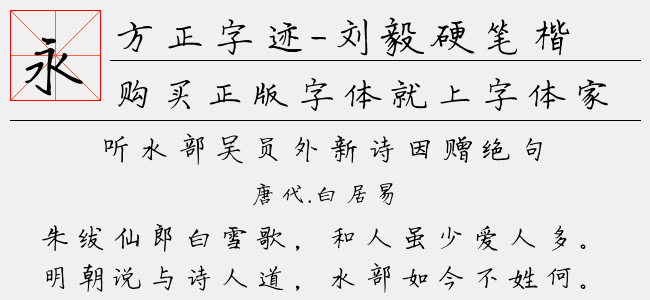 永
方正字迹-刘毅硬笔楷
购买正版字体就上字体家
听水部吴员外新诗因赠绝句
唐代.白居易
朱绂仙郎白雪歌，和人虽少爱人多。
明朝说与诗人道，水部如今不姓何。